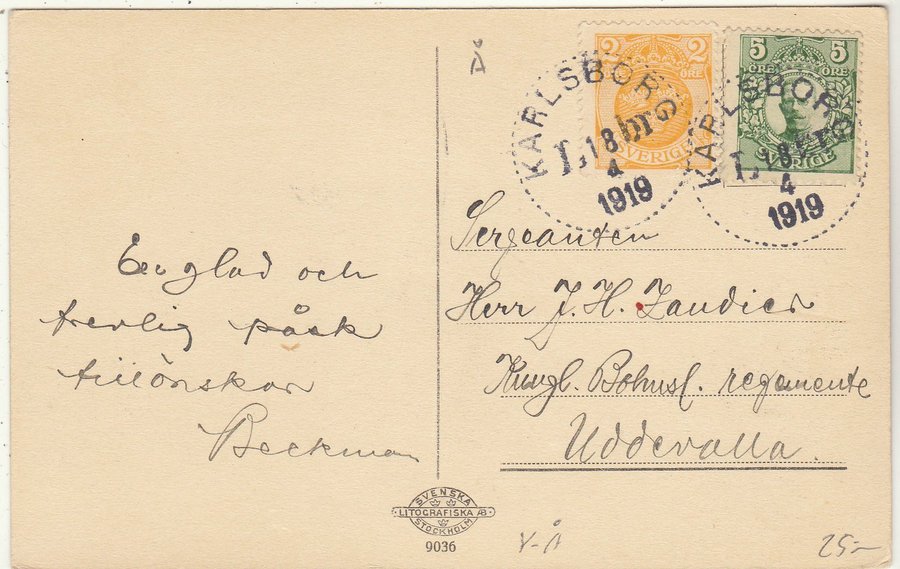 2 2
ÖRE
SVERIGE
5 5
ÖRE ÖRE
SVERIGE
KARLSBORG
Lbr
18
4
1919
KARLSBORG
Lbr
18
4
1919
En glad och
trevlig påsk
tillönskar
Beckman
Sergeanten
Herr J. H. Landier
Kungl. Bohusl. regemente
Uddevalla.
SVENSKA
LITOGRAFISKA AB
STOCKHOLM
9036
V-Å
25:-